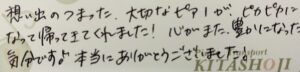 想い出のつまった、大切なピアノが、ピカピカに
なって帰ってきてくれました！心がまた、豊かになった
気分です♪本当にありがとうございました。
support
KITASHOJI